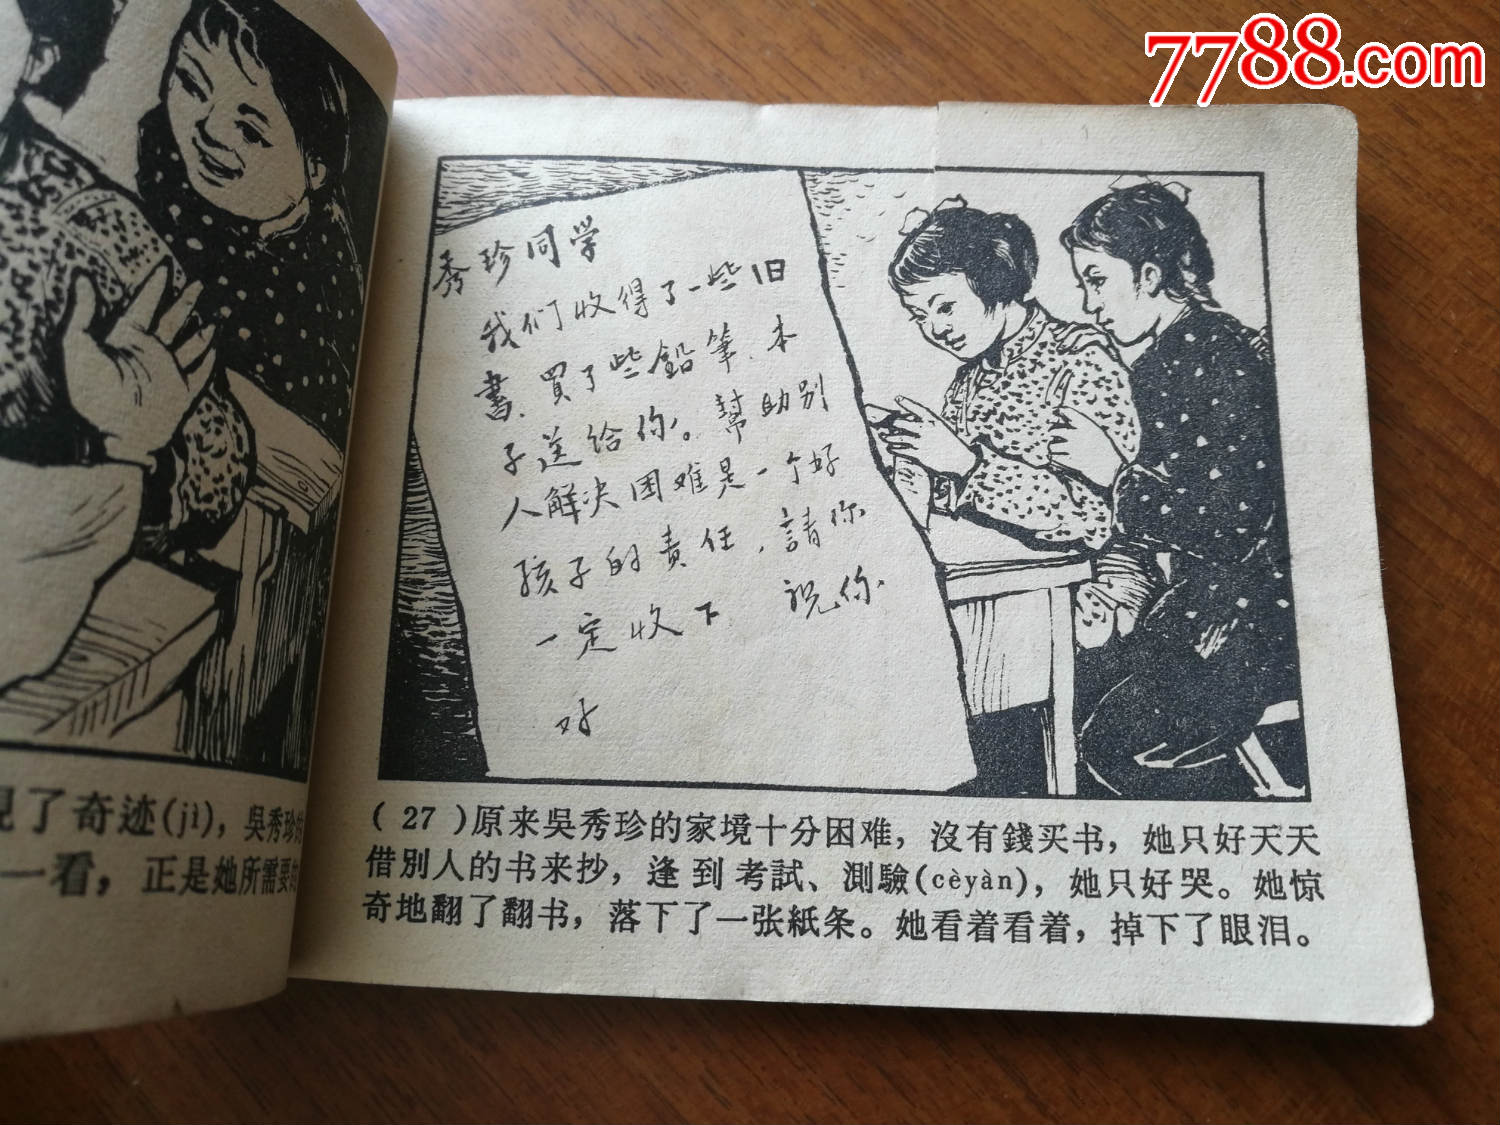 7788.com
秀珍同学
我们收得了一些旧
書、買了些鉛筆、本
子送给你。幫助别
人解决困难是一个好
孩子的责任，請你
一定收下 祝你
好
了奇迹(jì)，吳秀珍
一看，正是她所需要的
( 27 )原来吳秀珍的家境十分困难，沒有錢买书，她只好天天
借別人的书来抄，逢到考試、測驗(cèyàn)，她只好哭。她惊
奇地翻了翻书，落下了一张紙条。她看着看着，掉下了眼泪。